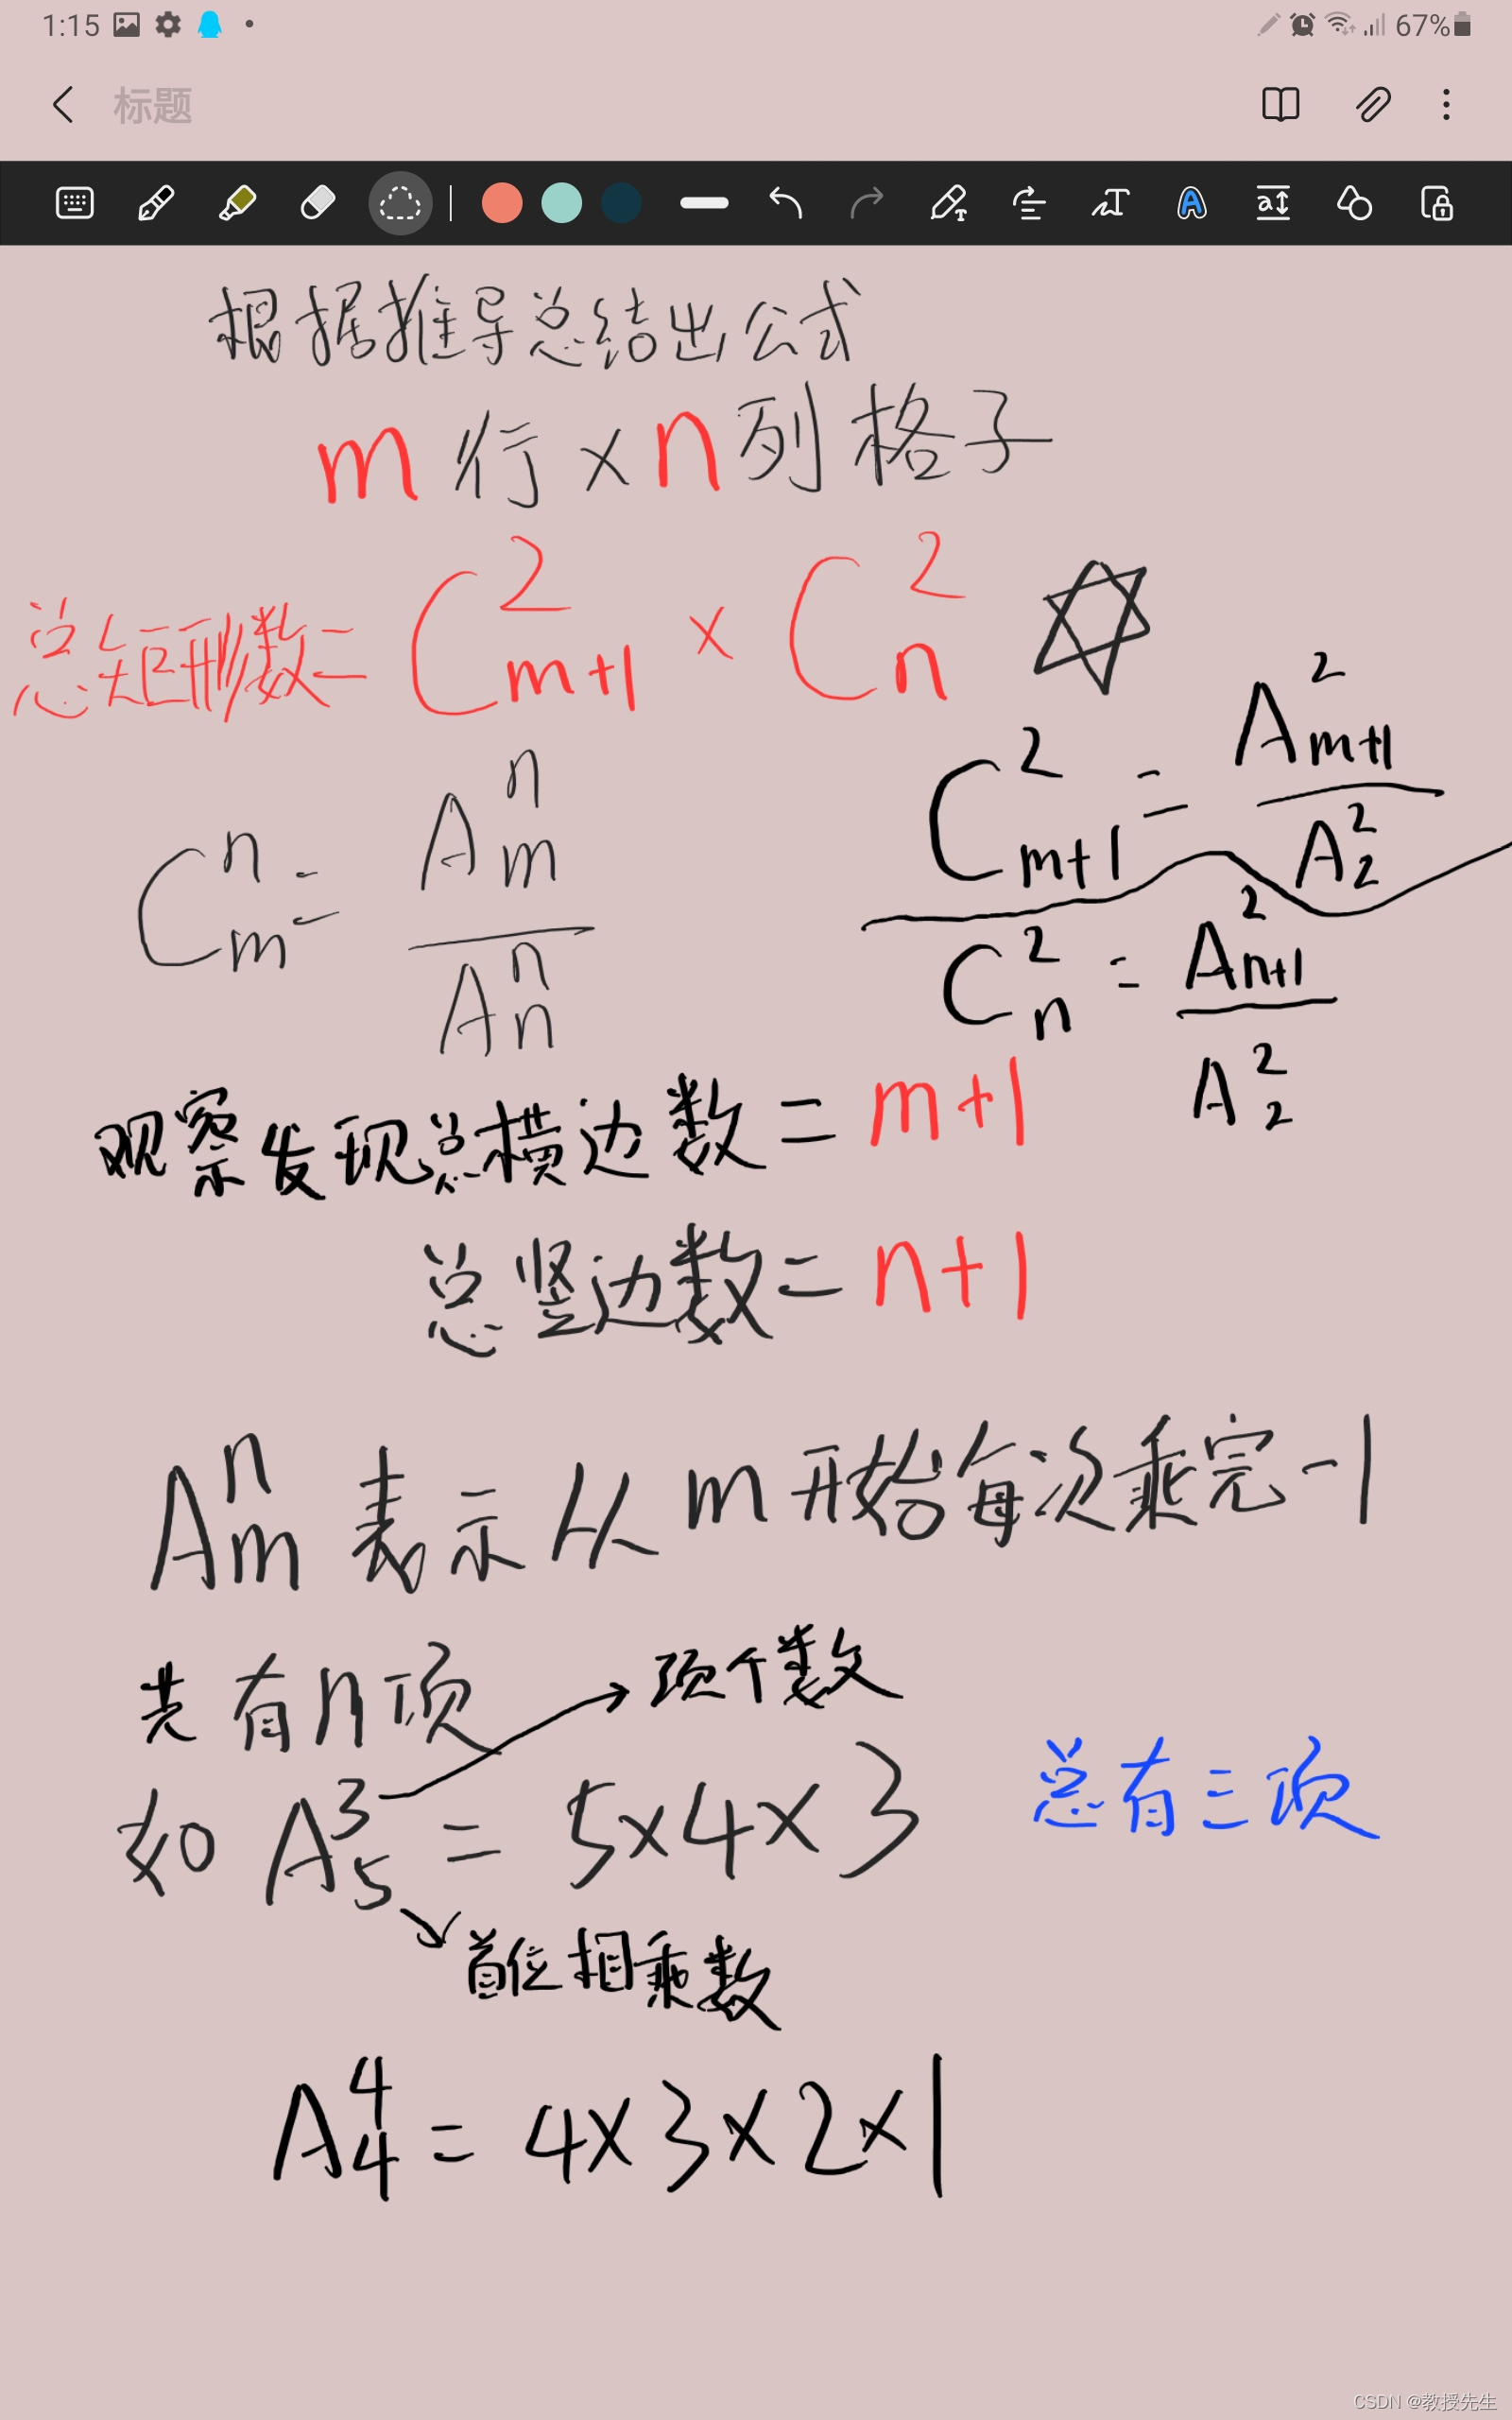 1:15 67%
标题
根据推导总结出公式
m行×n列格子
总矩形数=C²m+1×C²n
C²m+1=A²m+1/A²2
Cⁿm=Aⁿm/Aⁿn
C²n=A²n+1/A²2
观察发现总横边数=m+1
总竖边数=n+1
Aⁿm表示从m开始每次乘完-1
共有n项→项个数
如A³5=5×4×3 总有三项
首位相乘数
A⁴4=4×3×2×1
CSDN @教授先生